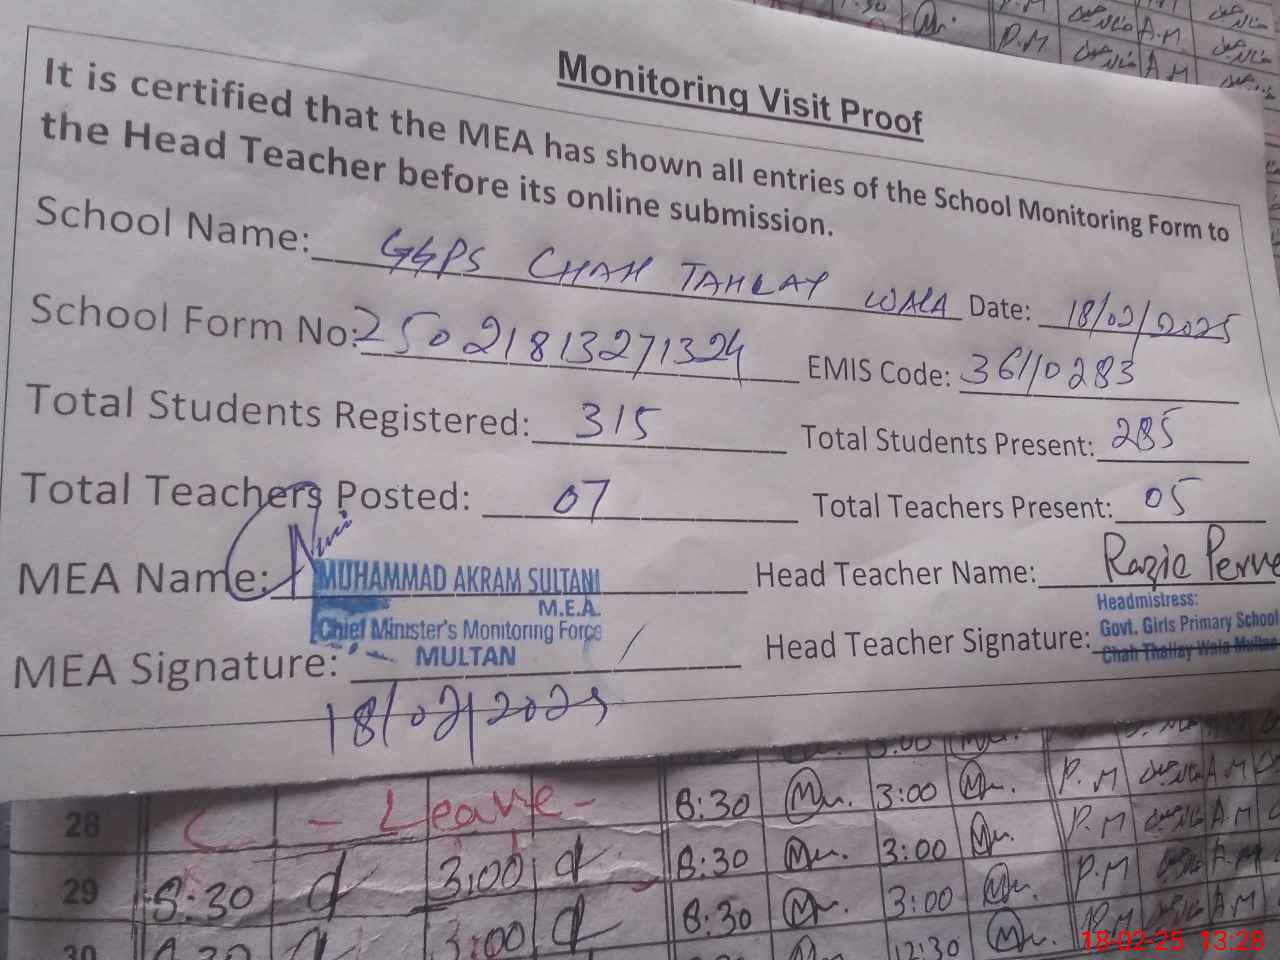 Monitoring Visit Proof
It is certified that the MEA has shown all entries of the School Monitoring Form to
the Head Teacher before its online submission.
School Name: GGPS CHAH TAHLAY WALA Date: 18/02/2025
School Form No: 25021813271324 EMIS Code: 36110283
Total Students Registered: 315 Total Students Present: 285
Total Teachers Posted: 07 Total Teachers Present: 05
MEA Name: MUHAMMAD AKRAM SULTANI Head Teacher Name: Razia Perve
M.E.A. Headmistress:
Chief Minister's Monitoring Force Govt. Girls Primary School
MEA Signature: MULTAN Head Teacher Signature: Chah Thallay Wala Multan
18/02/2025
28 - Leave - 8:30 3:00 P.M A.M
29 8:30 3:00 8:30 3:00 P.M A.M
30 8:30 3:00 8:30 3:00 P.M A.M
12:30 P.M A.M
18-02-25 13:28